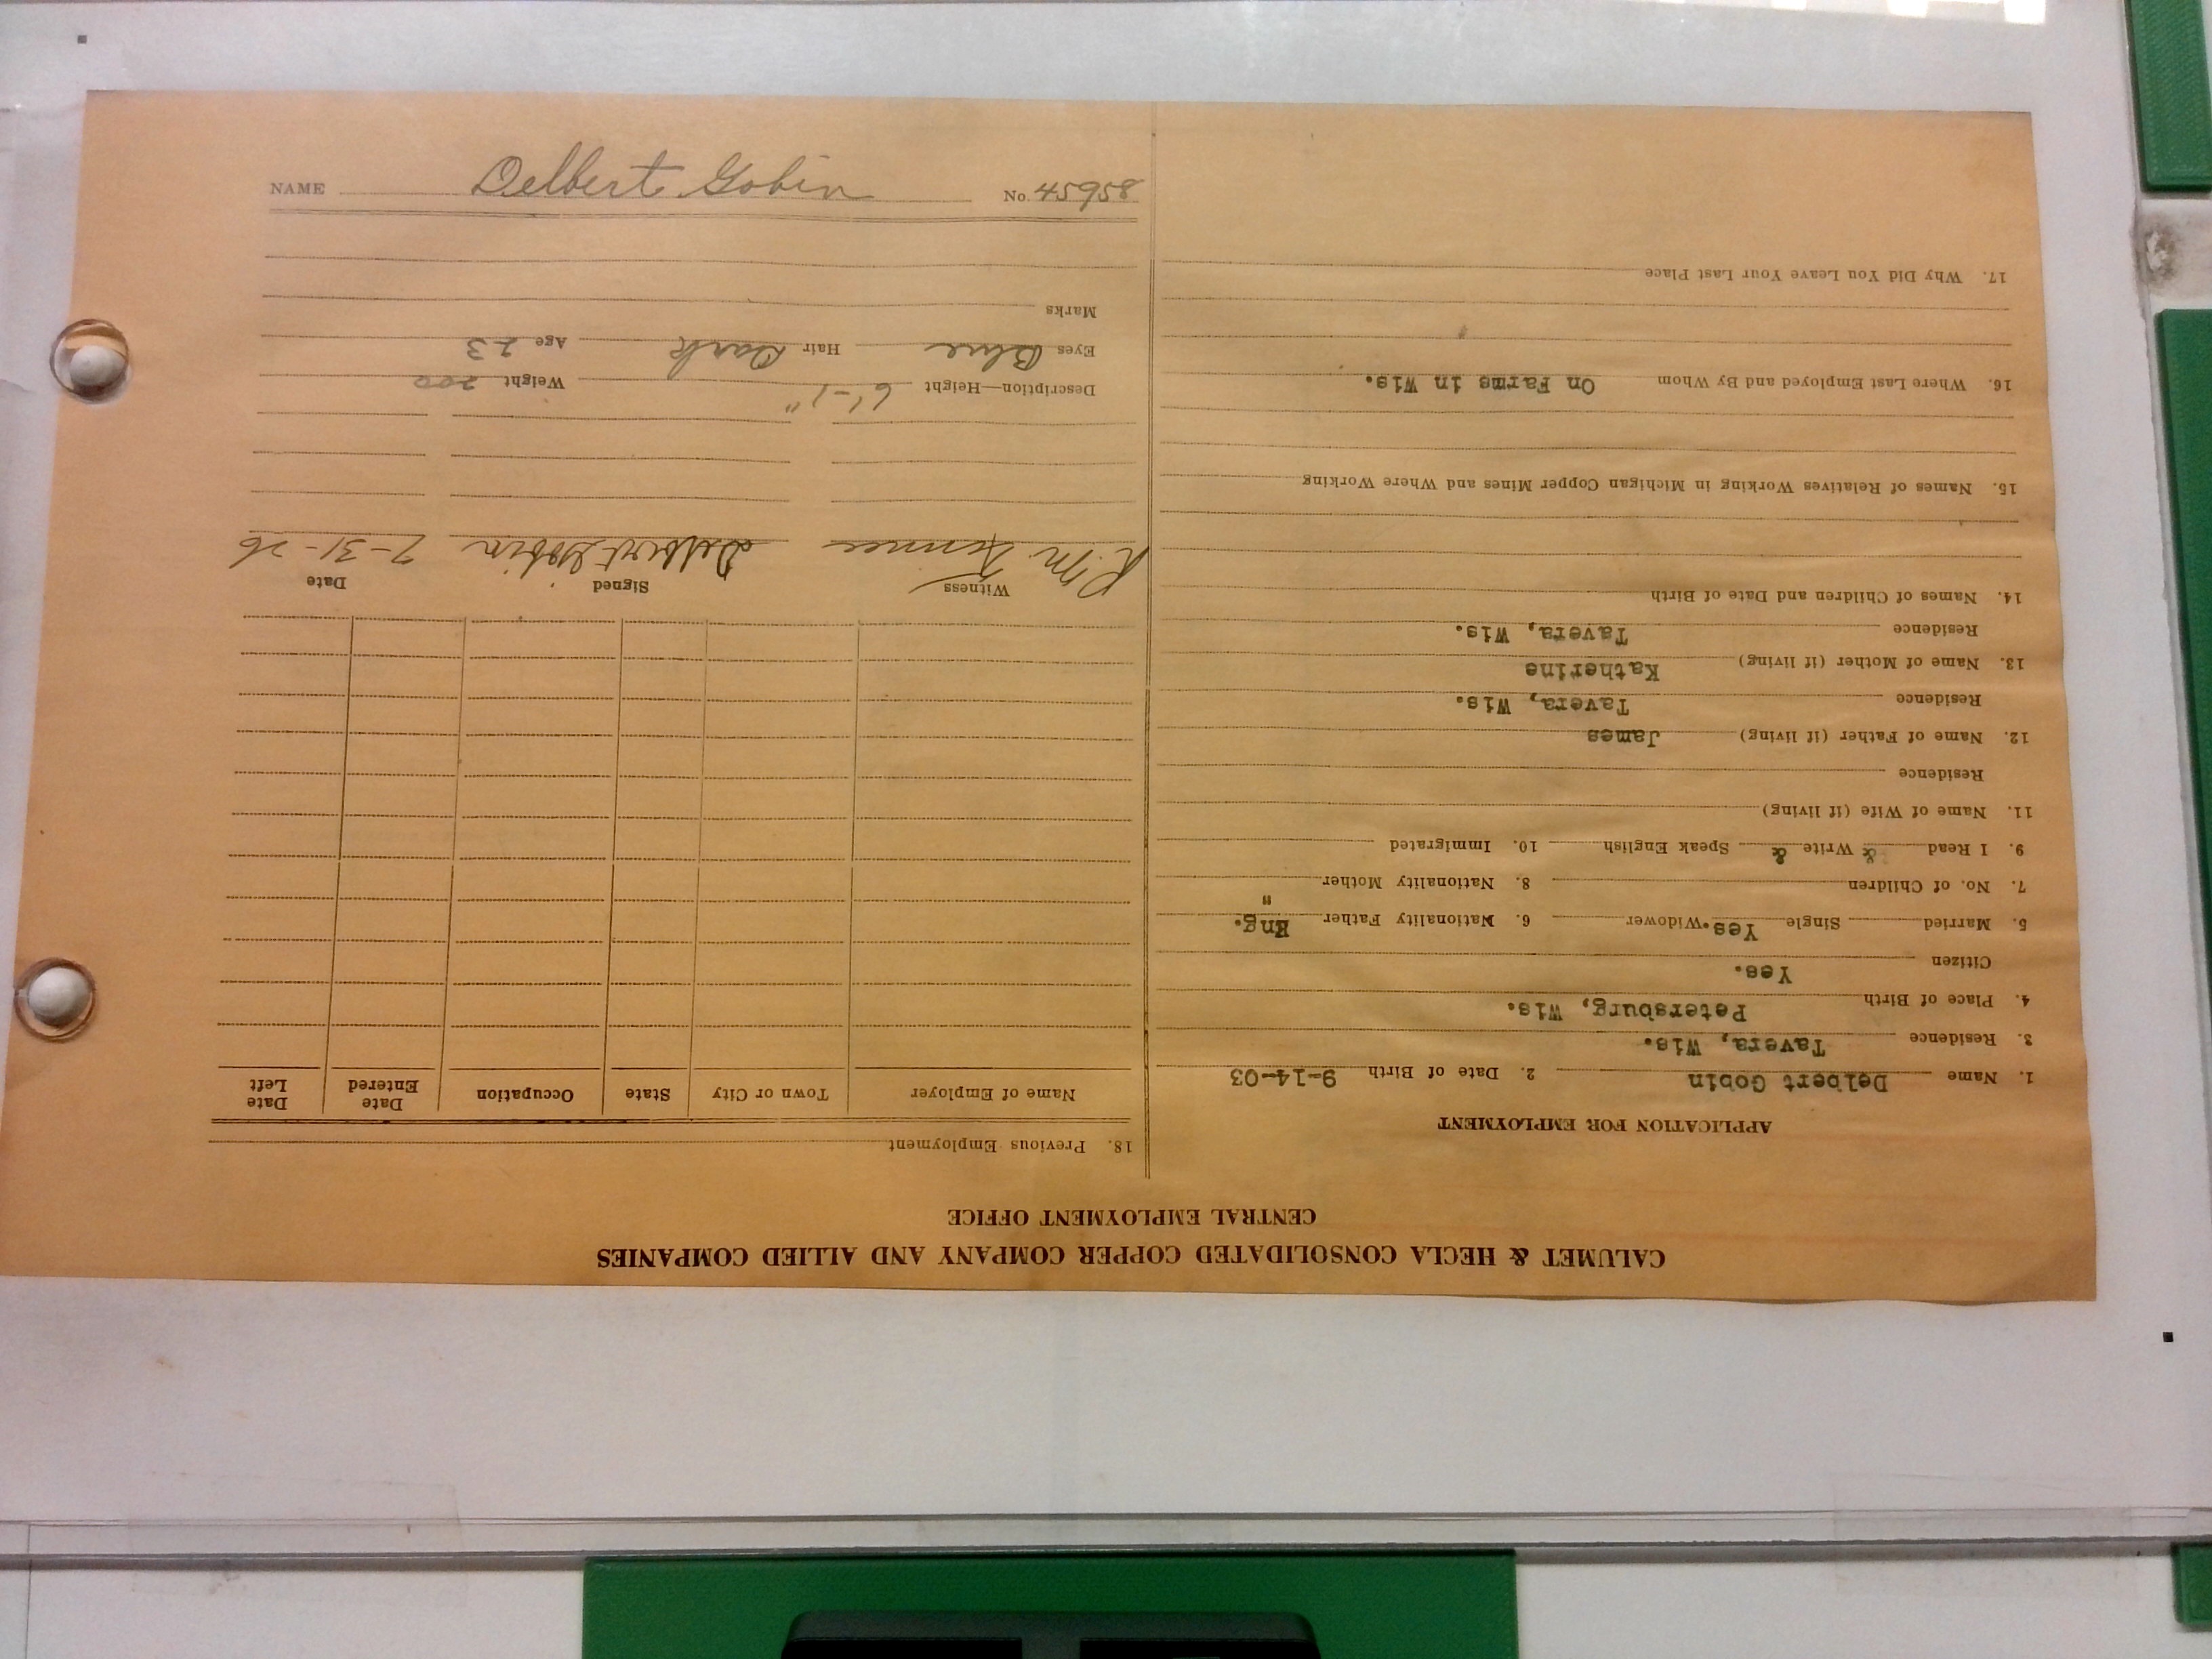 NAME Delbert Gobin No. 45958
CALUMET & HECLA CONSOLIDATED COPPER COMPANY AND ALLIED COMPANIES
CENTRAL EMPLOYMENT OFFICE
APPLICATION FOR EMPLOYMENT
1. Name Delbert Gobin 2. Date of Birth 9-14-03
3. Residence Tavera, Wis.
4. Place of Birth Petersburg, Wis.
Citizen Yes.
5. Married Single Yes. Widower 6. Nationality Father Eng.
7. No. of Children 8. Nationality Mother "
9. I Read & Write & Speak English 10. Immigrated
11. Name of Wife (if living)
Residence
12. Name of Father (if living) James
Residence Tavera, Wis.
13. Name of Mother (if living) Katherine
Residence Tavera, Wis.
14. Names of Children and Date of Birth
15. Names of Relatives Working in Michigan Copper Mines and Where Working
16. Where Last Employed and By Whom On Farms in Wis.
17. Why Did You Leave Your Last Place
18. Previous Employment
Name of Employer Town or City State Occupation Date Entered Date Left
Witness Signed Date
R. M. Delbert Gobin 7-31-26
Description—Height 6'-1" Weight 200
Eyes Blue Hair Dark Age 23
Marks